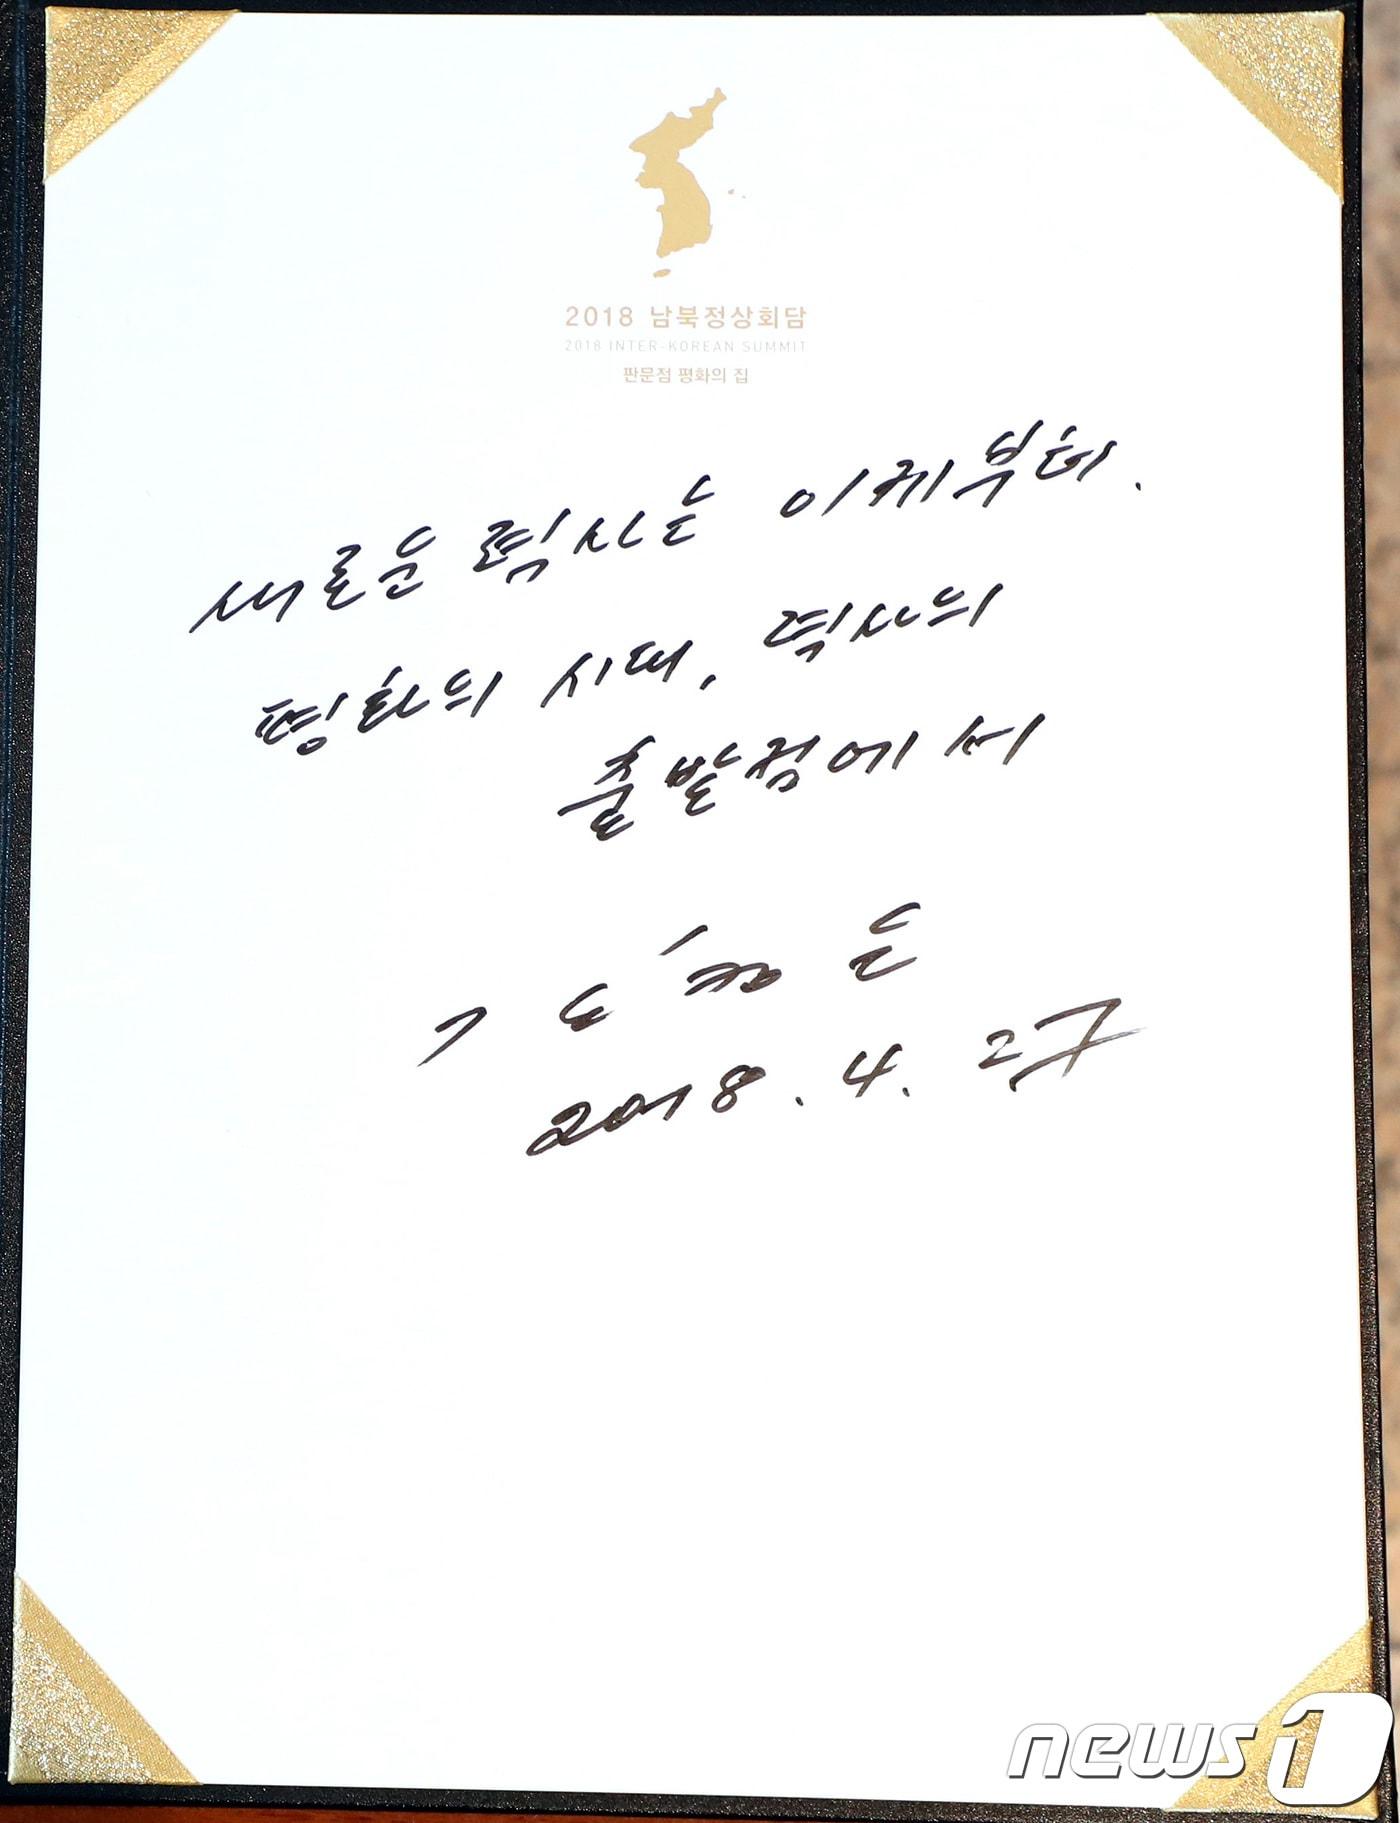 2018 남북정상회담
2018 INTER-KOREAN SUMMIT
판문점 평화의 집
새로운 력사는 이제부터.
평화의 시대, 력사의
출발점에서
김정은
2018. 4. 27
news1